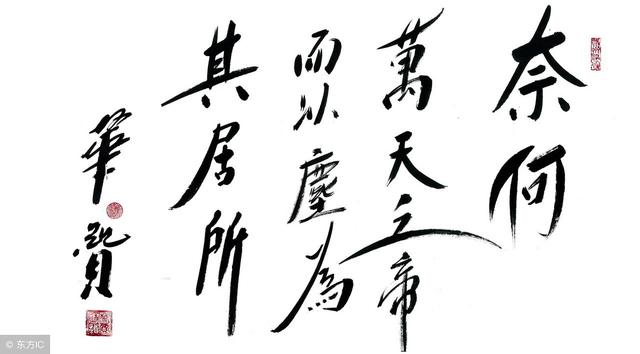 奈何
萬天之帝
而以塵為
其居所
華贊
© 东方IC